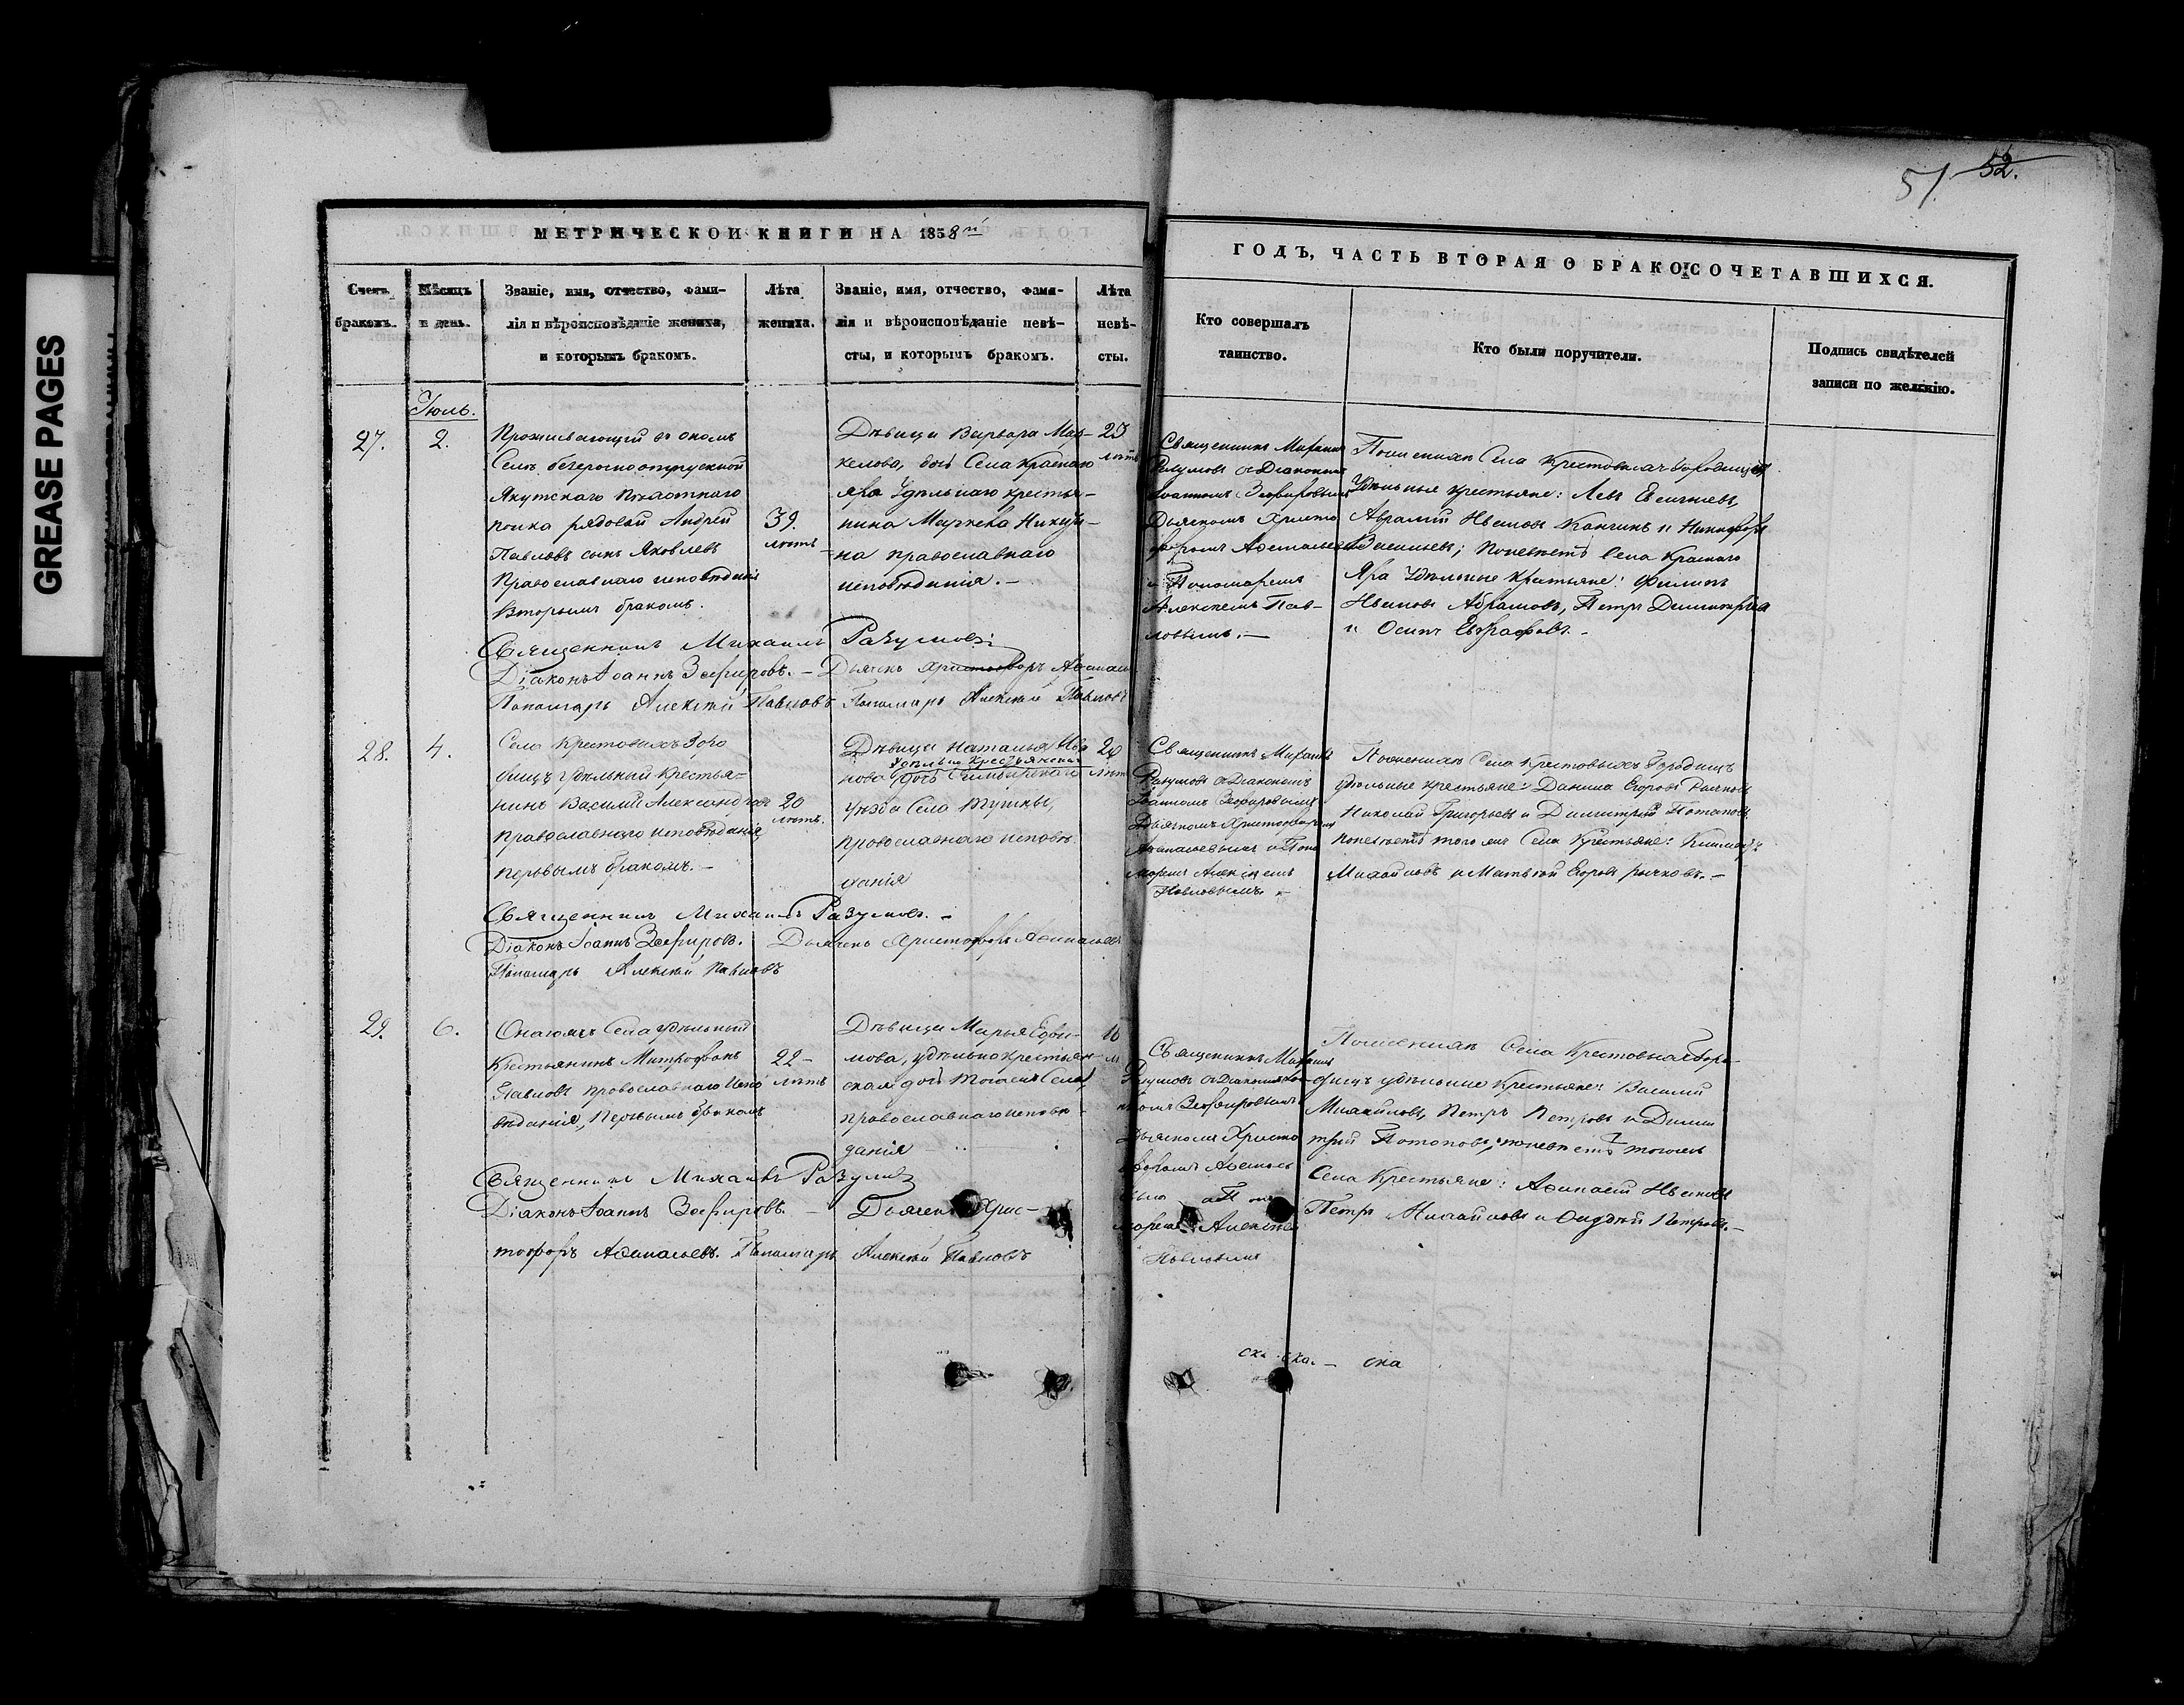 GREASE PAGES
51. 52.
МЕТРИЧЕСКОЙ КНИГИ НА 1858й
ГОДЪ, ЧАСТЬ ВТОРАЯ О БРАКОСОЧЕТАВШИХСЯ.
Счетъ
браковъ.
Мѣсяцъ
и день.
Званіе, имя, отчество, фами-
лія и вѣроисповѣданіе жениха,
и которымъ бракомъ.
Лѣта
жениха.
Званіе, имя, отчество, фами-
лія и вѣроисповѣданіе невѣ-
сты, и которымъ бракомъ.
Лѣта
невѣ-
сты.
Кто совершалъ
таинство.
Кто были поручители.
Подпись свидѣтелей
записи по желанію.
Іюль.
27.
2.
Проживающій въ ономъ
Селѣ безсрочноотпускной
Якутскаго Пѣхотнаго
полка рядовой Андрей
Павловъ сынъ Яковлевъ
Православнаго исповѣданія
Вторымъ бракомъ.
39.
лѣтъ
Дѣвица Варвара Мар-
келова, дочь Села Краснаго
Яра Удѣльнаго крестья-
нина Маркела Никити-
на православнаго
исповѣданія.-
лѣтъ
Священникъ Михаилъ
Разумовъ съ Діакономъ
Іоанномъ Зефировымъ
Дьячкомъ Христо
форомъ Афанасьев
и Пономаремъ
Алексѣемъ Пав-
ловымъ.-
По женихѣ Села Крестовыхъ Городищъ
Удѣльные крестьяне: Левъ Евсигнѣевъ,
Авраамій Ивановъ и Никифоръ
Васильевъ; по невѣстѣ Села Краснаго
Яра Удѣльные Крестьяне: Филипъ
Ивановъ Абрамовъ, Петръ Димитріевъ
и Осипъ Евграфовъ.-
Священникъ Михаилъ Разумовъ
Діаконъ Іоаннъ Зефировъ.- Дьячекъ Христофоръ Афанась
Пономарь Алексѣй Павловъ Пономарь Алексѣй Павловъ
28.
4.
Села Крестовыхъ Горо
дищъ Удѣльный Крестья=
нинъ Василій Александровъ
Православнаго исповѣданія,
первымъ бракомъ.-
20
лѣтъ.
Дѣвица Наталья Ива
Удѣльно Крестьянская
нова дочь Симбирскаго
Уѣзда Села Тушны,
Православнаго исповѣ-
данія
20
лѣт
Священникъ Михаилъ
Разумовъ съ Діакономъ
Іоанномъ Зефировымъ
Дьячкомъ Христофоромъ
Афанасьевымъ и Поно
маремъ Алексѣемъ
Павловымъ.-
По женихѣ Села Крестовыхъ Городищъ
удѣльные крестьяне: Данила Егоровъ Рычковъ
Николай Григорьевъ и Димитрій Потаповъ,
по невѣстѣ того же Села Крестьяне:
Михайловъ и Матвѣй Егоровъ рычковъ.-
Священникъ Михаилъ Разумовъ.-
Діаконъ Іоаннъ Зефировъ. Дьячекъ Христофоръ Афанасьевъ
Пономарь Алексѣй Павловъ
29.
6.
Онаго же Села удѣльный
Крестьянинъ Митрофанъ
Павловъ православнаго Испо
вѣданія, Первымъ бракомъ
22-
лѣтъ
Дѣвица Марья Ефи-
мова, удѣльно крестьян-
ская дочь того же Села,
православнаго исповѣ-
данія
Священникъ Михаилъ
Разумовъ съ Діакономъ Іоа-
нномъ Зефировымъ
Дьячкомъ Христо
форомъ Афанась
вымъ и Поно
маремъ Алексѣемъ
Павловымъ
По женихѣ Села Крестовыхъ Горо-
дищъ удѣльные Крестьяне: Василій
Михайловъ, Петръ Петровъ и Дими
трій Потаповъ, по невѣстѣ того же
Села Крестьяне: Афанасій Ивановъ
Петръ Михайловъ и Андрей Петровъ.-
Священникъ Михаилъ Разумовъ
Діаконъ Іоаннъ Зефировъ. - Дьячекъ Хрис-
тофоръ Афанасьевъ. Пономарь Алексѣй Павловъ